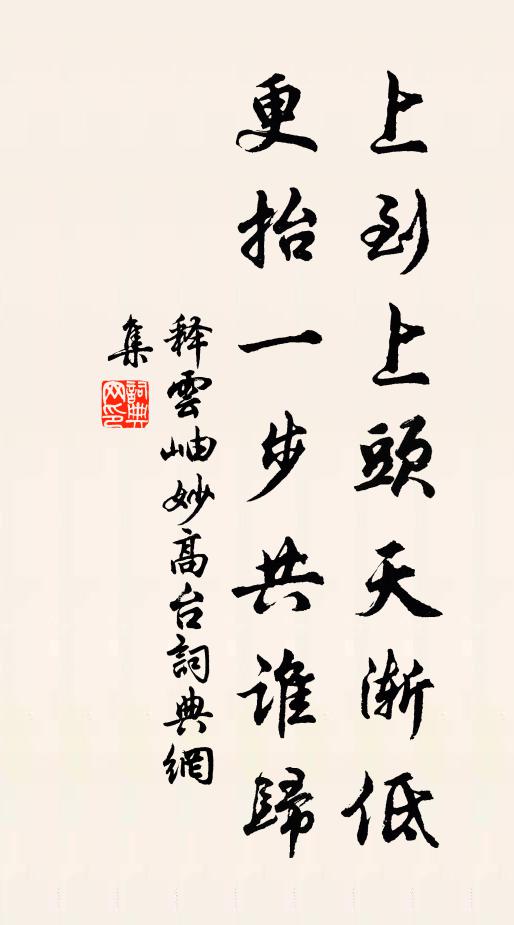 上到上頭天漸低
更抬一步共誰歸
释雲岫妙高台詞典網
集
詞典网印